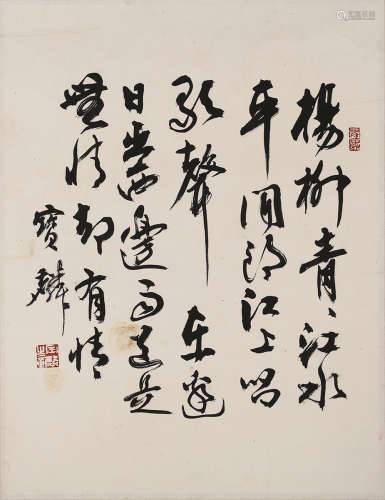 楊柳青、江水
平聞郎江上唱
歌聲 东邊
日出西邊雨道是
無情却有情
寶麟